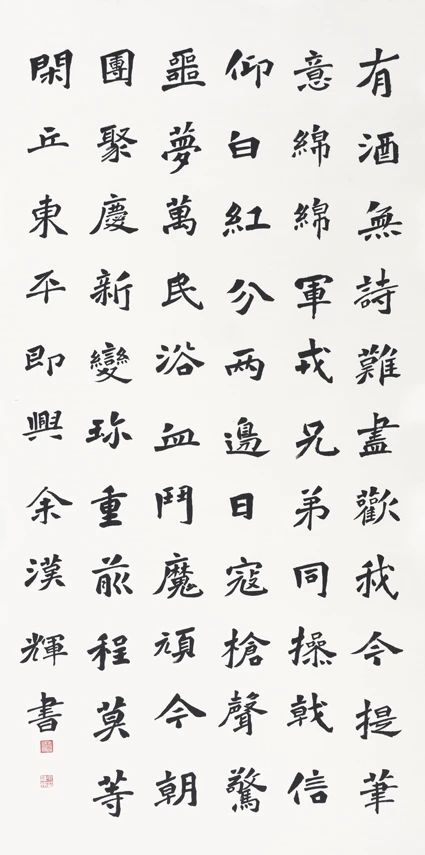 有酒無詩難盡歡我今提筆
意綿綿軍戎兄弟同操戟信
仰白紅分两邊日寇槍聲驚
噩夢萬民浴血鬥魔頑今朝
團聚慶新變珎重前程莫等
閑丘東平即興余漢輝書